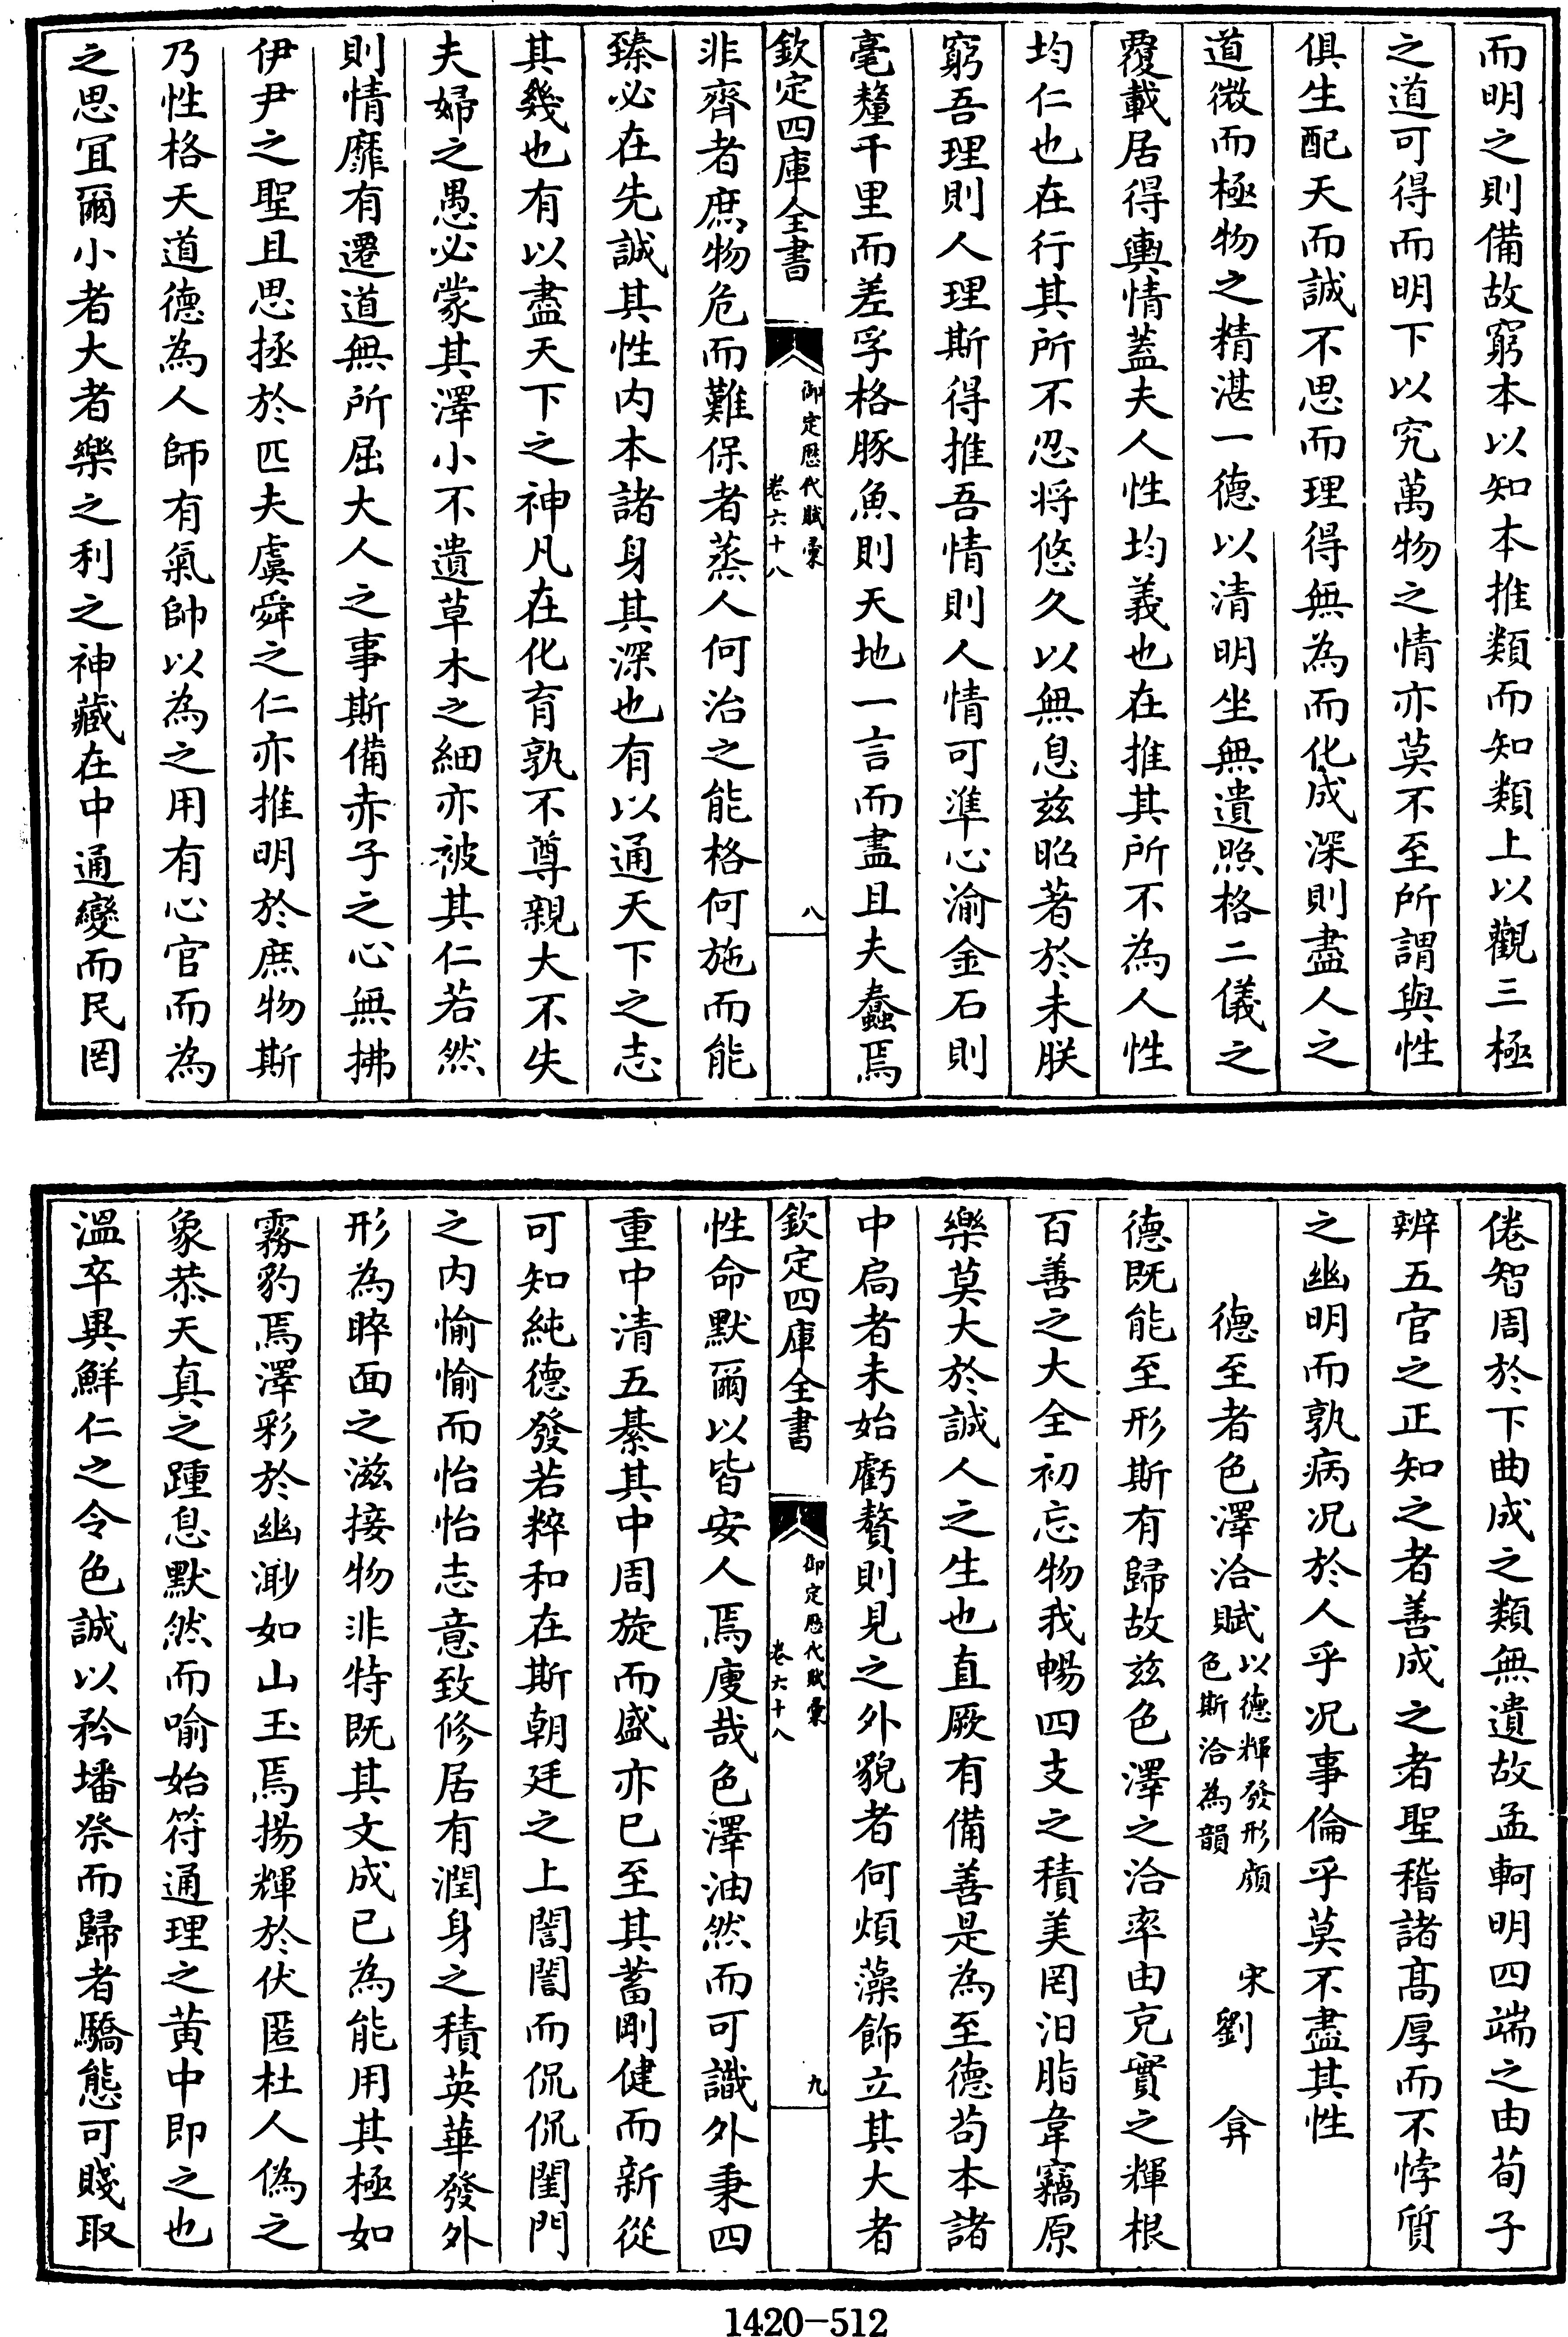 而明之則備故窮本以知本推類而知類上以觀三極
之道可得而明下以究萬物之情亦莫不至所謂與性
俱生配天而誠不思而理得無為而化成深則盡人之
道微而極物之精湛一德以清明坐無遺照格二儀之
覆載居得輿情蓋夫人性均義也在推其所不為人性
均仁也在行其所不忍将悠久以無息兹昭著於未朕
窮吾理則人理斯得推吾情則人情可準心渝金石則
毫釐千里而差孚格豚魚則天地一言而盡且夫蠢焉
欽定四庫全書
御定歴代賦彙
卷六十八
八
非齊者庶物危而難保者蒸人何治之能格何施而能
臻必在先誠其性内本諸身其深也有以通天下之志
其幾也有以盡天下之神凡在化育孰不尊親大不失
夫婦之愚必蒙其澤小不遺草木之細亦被其仁若然
則情靡有遷道無所屈大人之事斯備赤子之心無拂
伊尹之聖且思拯於匹夫虞舜之仁亦推明於庶物斯
乃性格天道德為人師有氣帥以為之用有心官而為
之思冝爾小者大者樂之利之神藏在中通變而民罔
倦智周於下曲成之類無遺故孟軻明四端之由荀子
辨五官之正知之者善成之者聖稽諸髙厚而不悖質
之幽明而孰病况於人乎况事倫乎莫不盡其性
德至者色澤洽賦以德輝發形顔色斯洽為韻 宋劉弇
德既能至形斯有歸故兹色澤之洽率由充實之輝根
百善之大全初忘物我暢四支之積美罔汨脂韋竊原
樂莫大於誠人之生也直厥有備善是為至德苟本諸
中扃者未始虧贅則見之外貌者何煩藻飾立其大者
欽定四庫全書
御定歴代賦彙
卷六十八
九
性命默爾以皆安人焉廋哉色澤油然而可識外秉四
重中清五綦其中周旋而盛亦已至其蓄剛健而新從
可知純德發若粹和在斯朝廷之上誾誾而侃侃閨門
之内愉愉而怡怡志意致修居有潤身之積英華發外
形為睟面之滋接物非特既其文成已為能用其極如
霧豹焉澤彩於幽渺如山玉焉揚輝於伏匿杜人偽之
象恭天真之踵息默然而喻始符通理之黄中即之也
溫卒異鮮仁之令色誠以矜墦祭而歸者驕態可賤取
1420-512